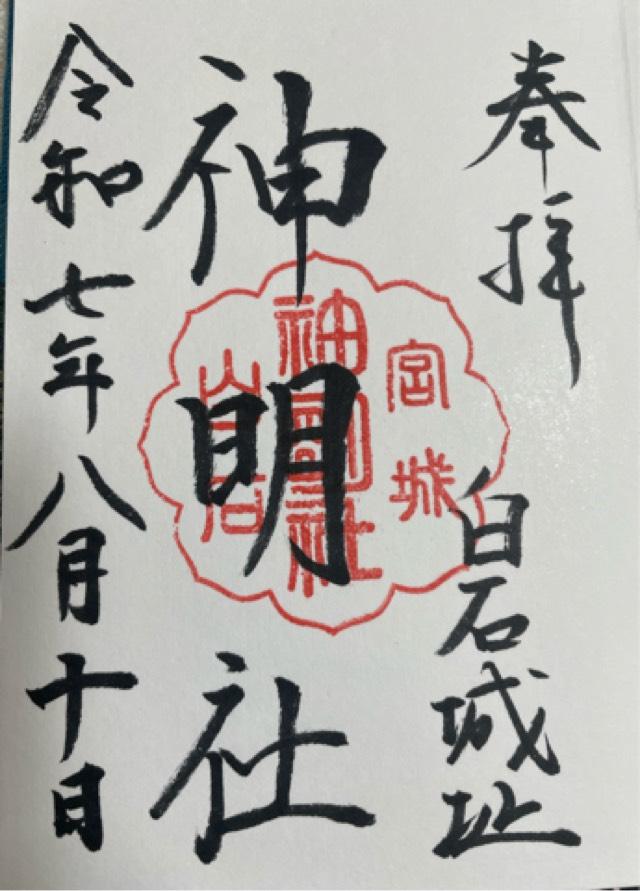 奉拝
白石城址
神明社
令和七年八月十日
宮城
神明社
白石